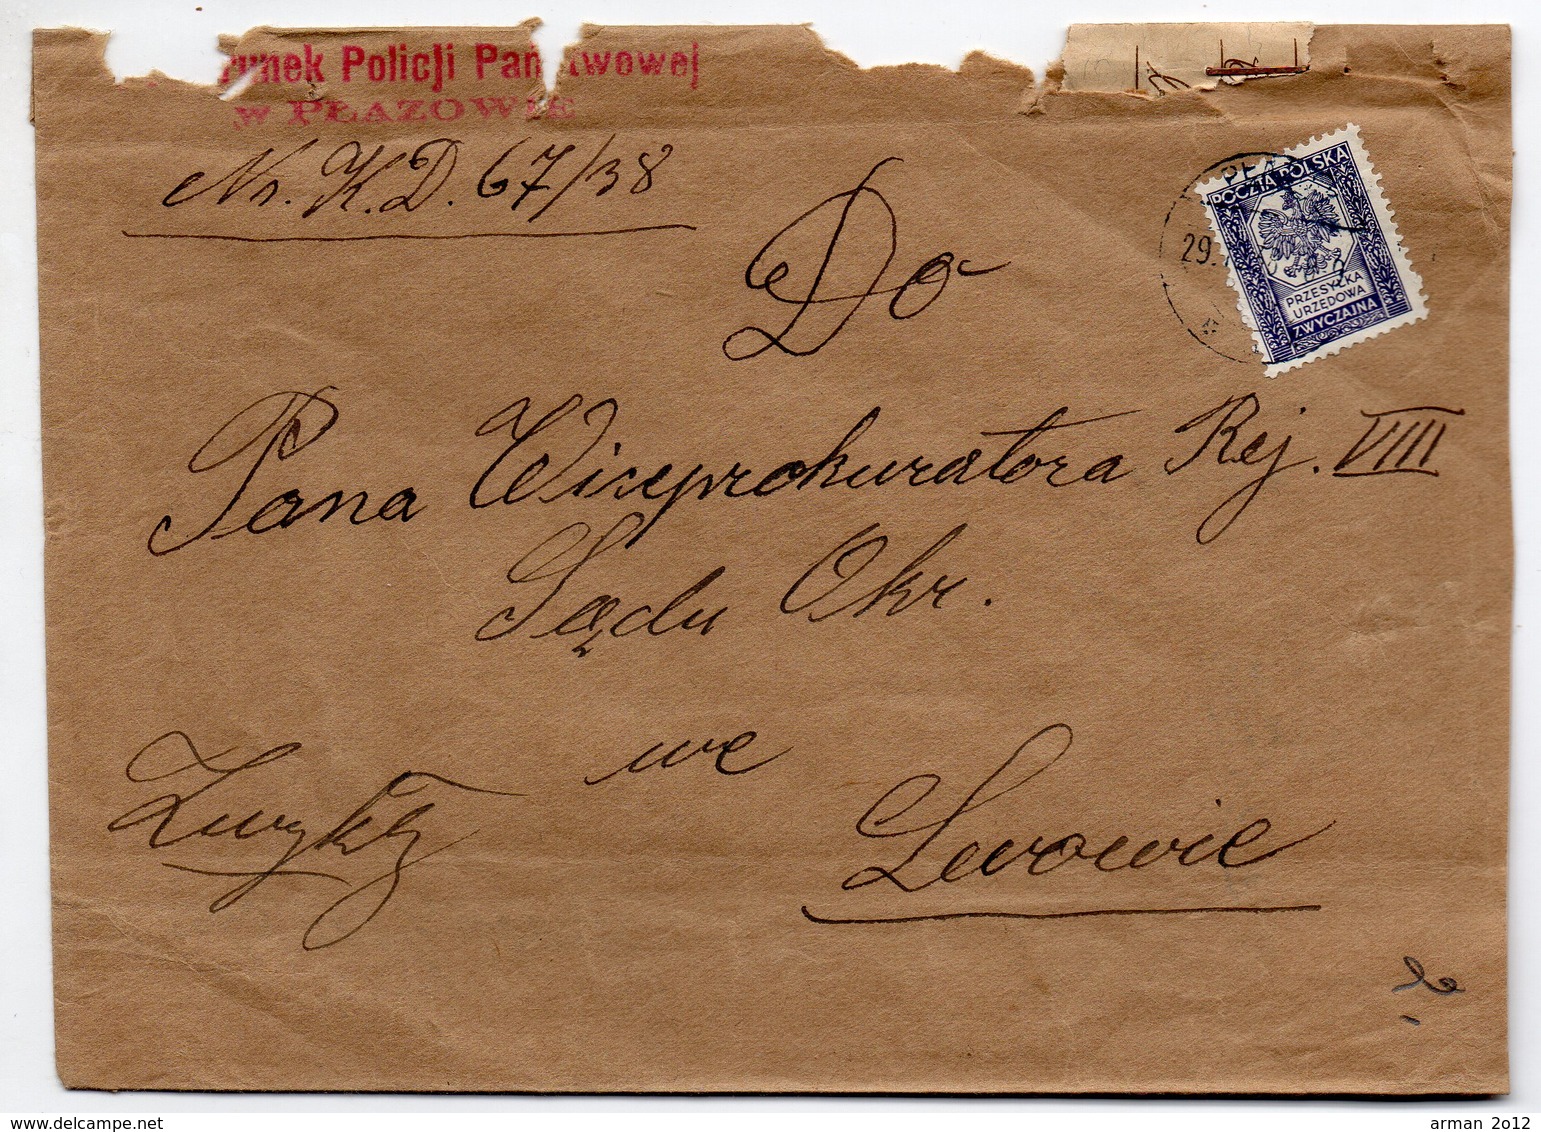 runek Policji Pań twowej
w PŁAZOWIE
Nr. K. D. 67/38
29.
POCZTA POLSKA
PRZESYŁKA
URZĘDOWA
ZWYCZAJNA
Do
Pana Wiceprokuratora Rej. VIII
Sądu Okr.
we
Lwowie
www.delcampe.net
arman 2012